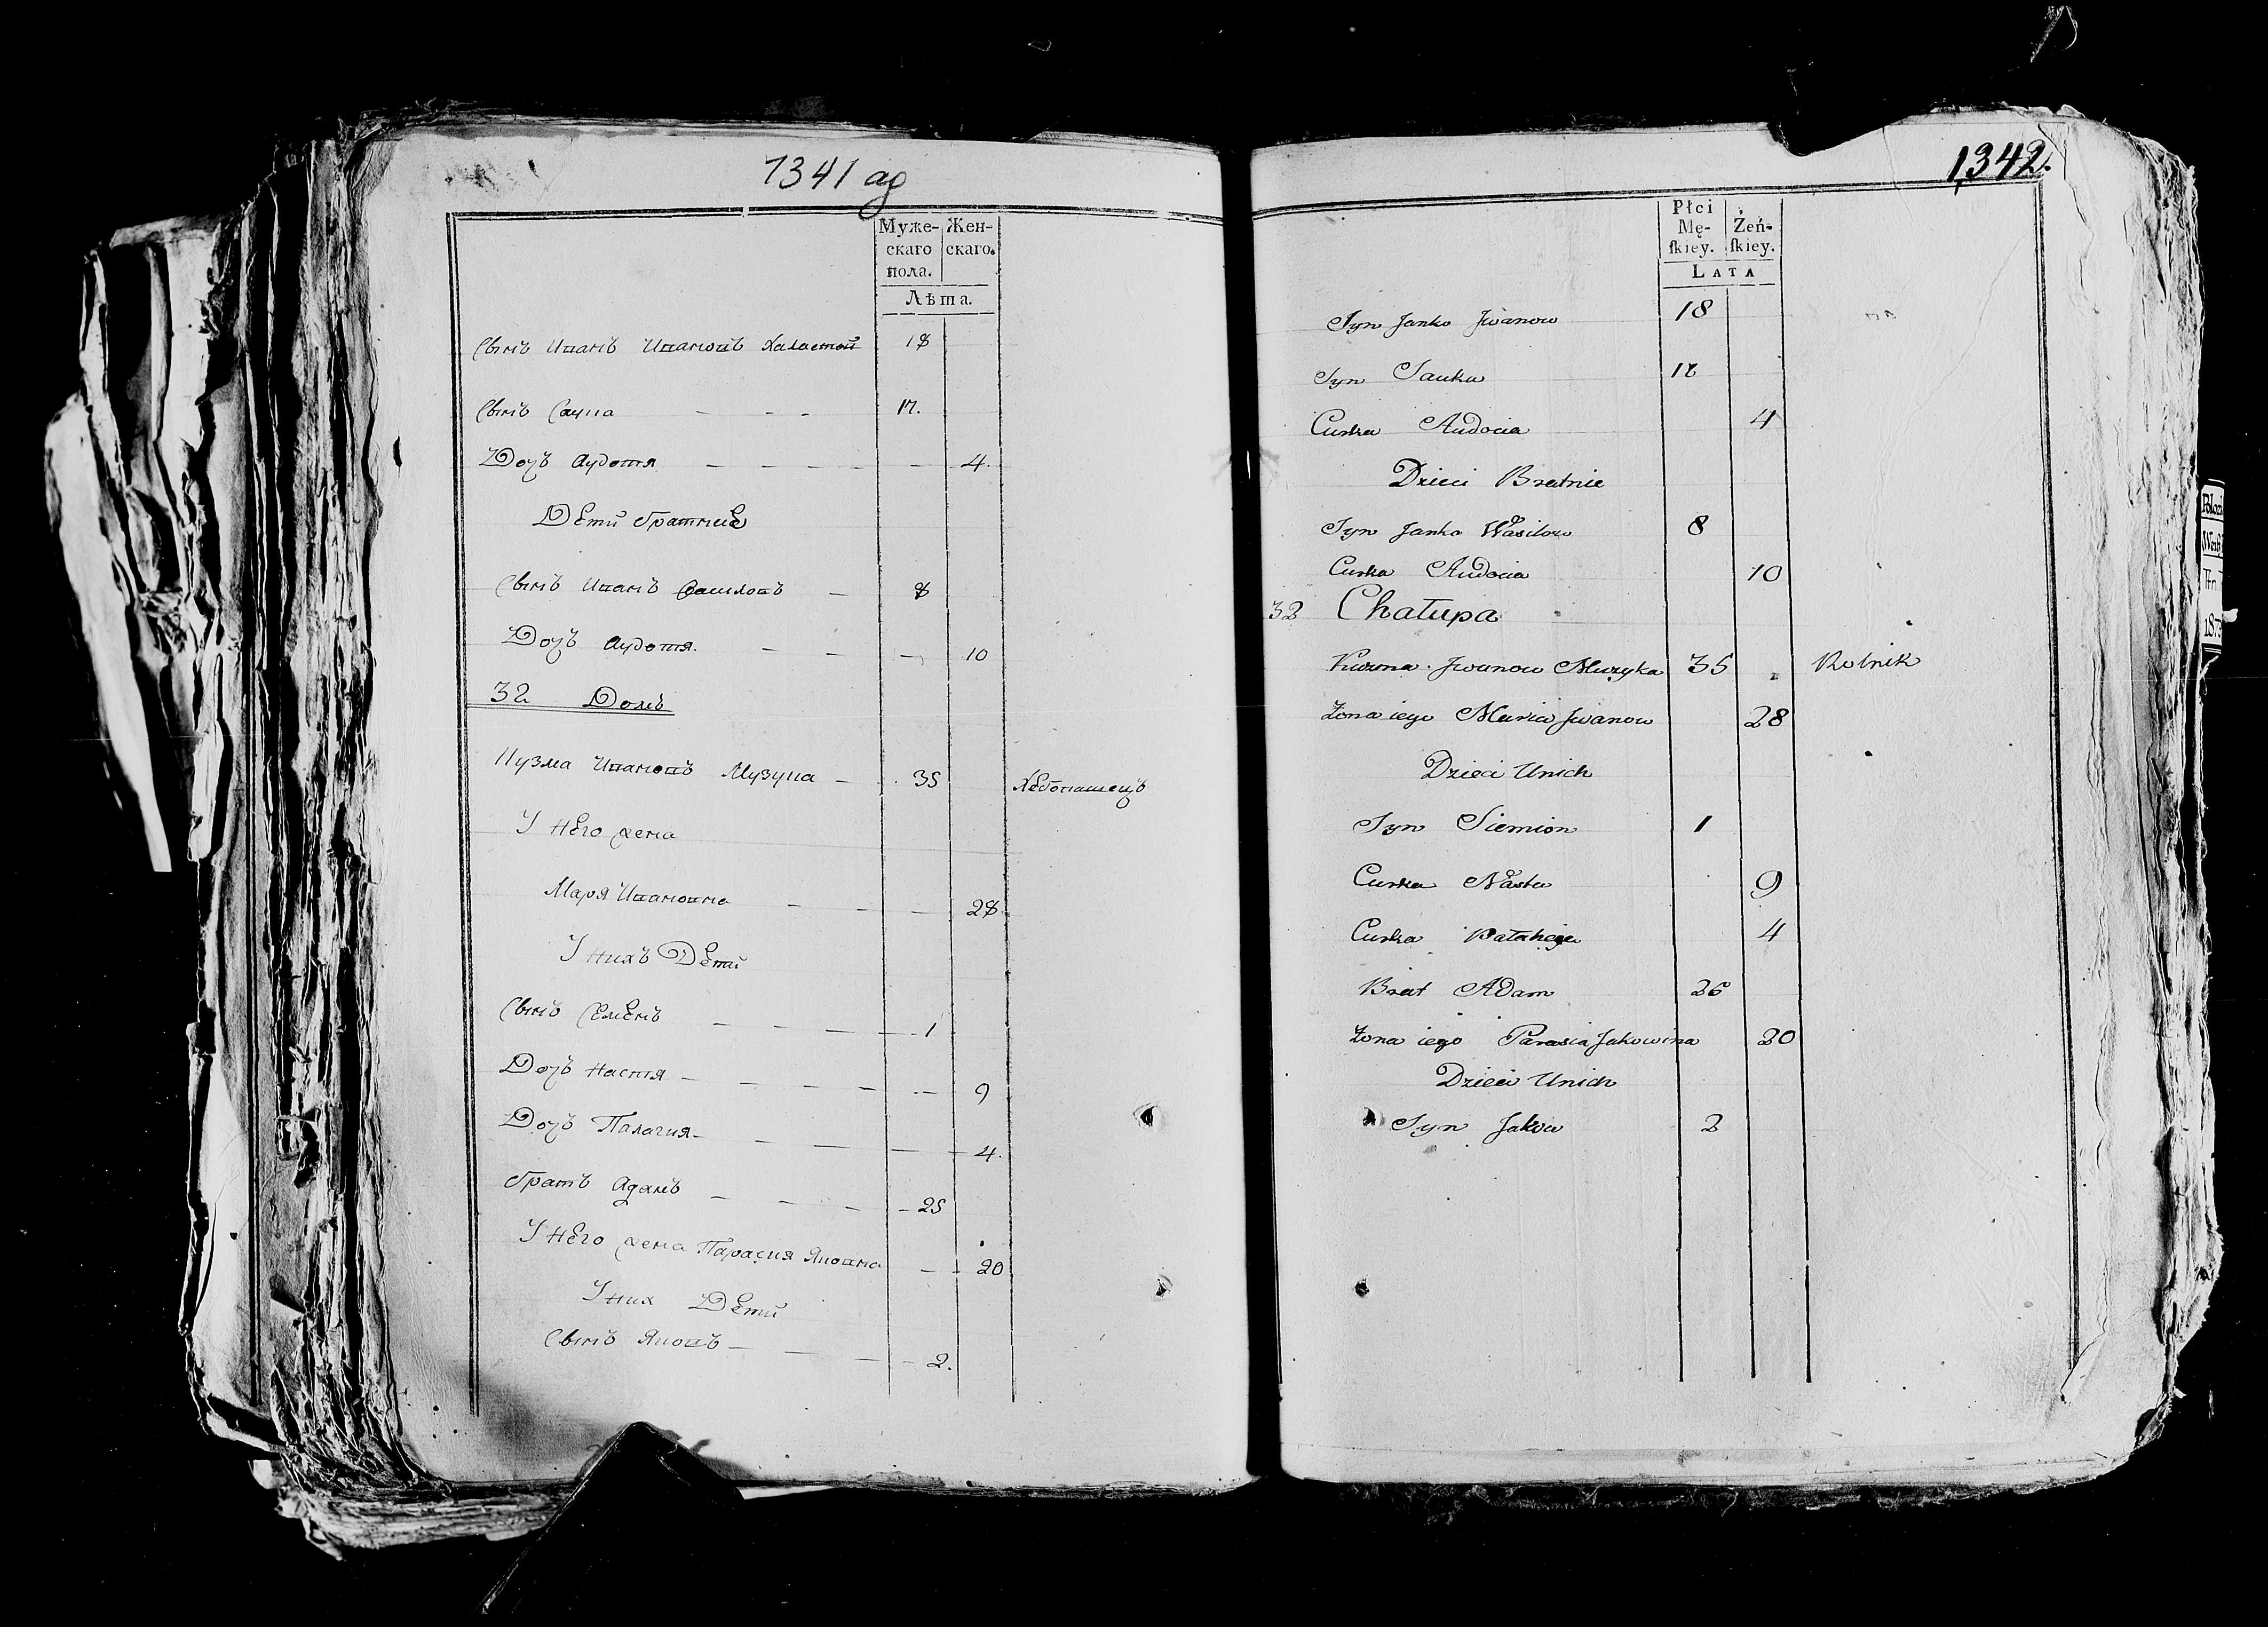 1341 ag
Муже-
скаго
пола.
Жен-
скаго.
Лѣта.
Сынъ Иванъ Ивановъ Халастой 18
Сынъ Саука - - - 17.
Дочъ Аудотя - - - - - 4.
Дети братние
Сынъ Иванъ Василовъ - 8
Дочъ Аудотя. - - - 10
32 Домъ
Кузма Ивановъ Музука - 35 Хлебопашецъ
У Него жена
Маря Ивановна - - - 28
У нихъ Дети
Сынъ Семенъ - - - - 1
Дочъ Настя - - - - - 9
Дочъ Палагия - - - - 4.
братъ Адамъ - - - - 25
У Него жена Парасия Яковна - - 20
У них Дети
Сынъ Яковъ - - - - 2.
1342.
Płci
Mę-
ſkiey.
Żeń-
ſkiey.
LATA
Syn Janko Jwanow 18
Syn Sauka
Curka Audocia 4
Dzieci Bratnie
Syn Janko Wasilow 8
Curka Audocia 10
32 Chałupa
Kuzma Jwanow Muzyka 35 Rolnik
Żona iego Maria Jwanow 28
Dzieci Unich
Syn Siemion 1
Curka Nasta 9
Curka 4
Brat Adam
Żona iego Parasia Jakowina 20
Dzieci Unich
Syn Jakow 2